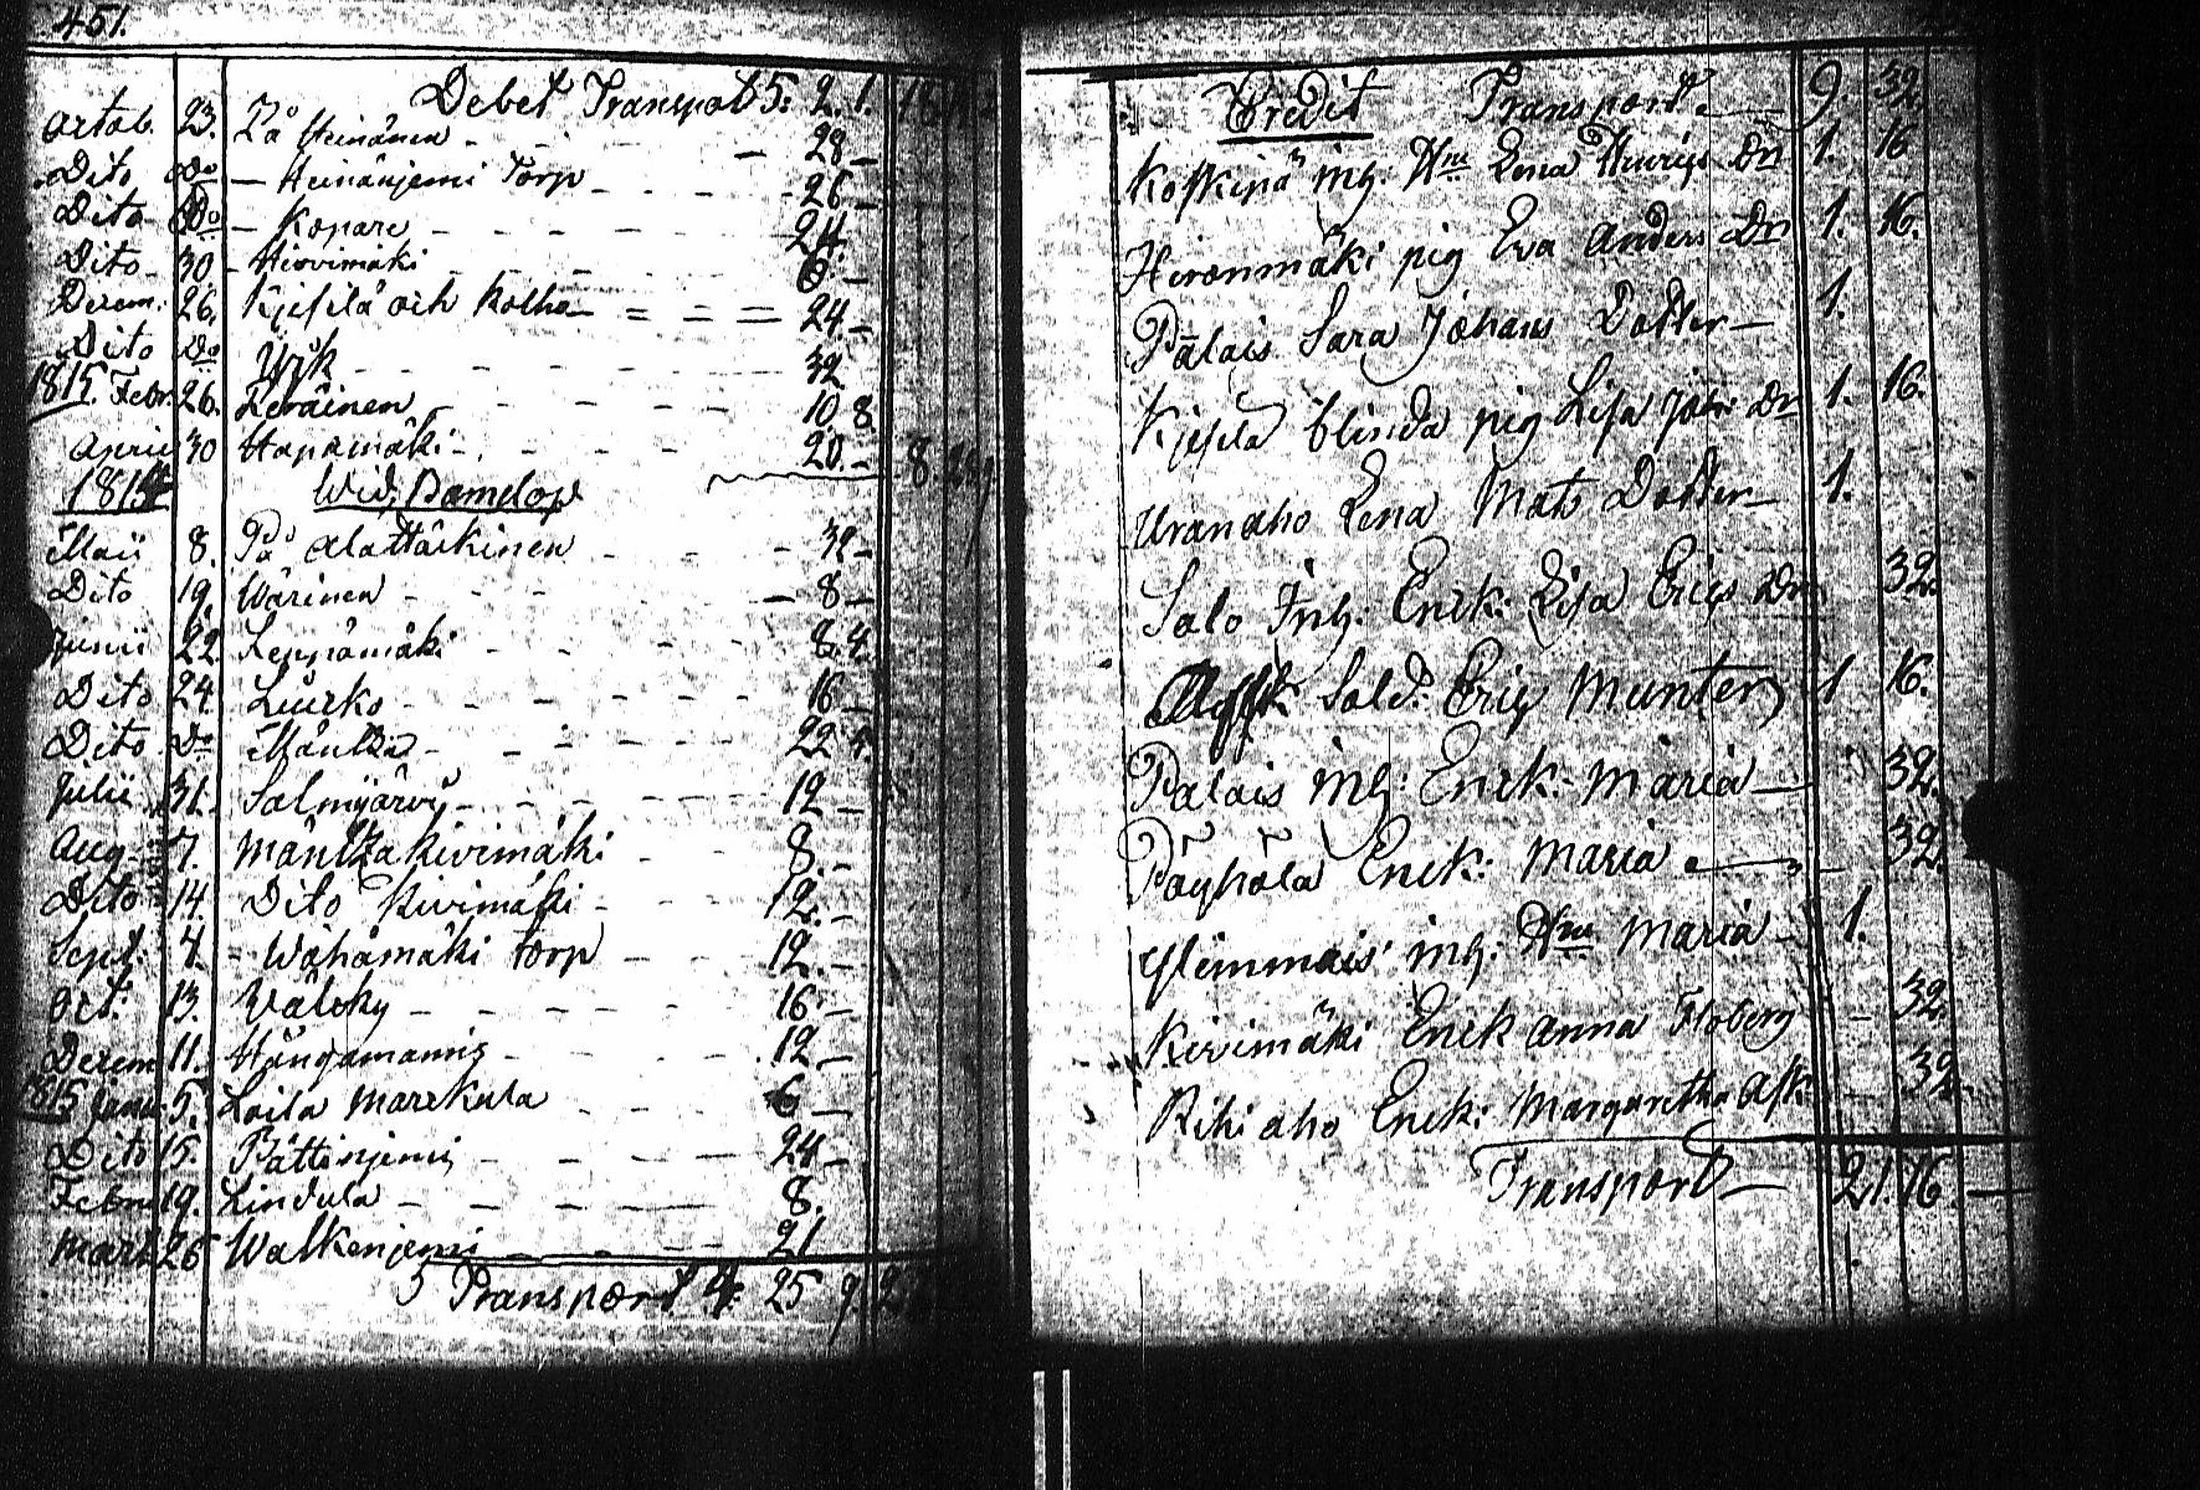 451.
Debet Transport 5: 2. 1.
Octob. 23. På Heinänen - 28 -
Dito Do - Heinänjemi Torp - 26 -
Dito Do - Kopare - 24.
Dito 30 - Hirvimäki 6. -
Decem. 26. Kjesilä och Kolha 24. -
Dito Do 32
1815. Febr. 26. Keräinen 10. 8.
April 30 Hapamäki 20. - 8.
1814 Wid Barndop
Maii 8. På Alattäikinen - 32 -
Dito 19. Wärinen - 8 -
Junii 22. Leppämäki - 8. 4.
Dito 24. Luurko - 16 -
Dito Do Mäntta - 22 4.
Julii 31. Salmijärvi - 12 -
Aug. 7. Mäntta Kivimäki - 8. -
Dito 14. Dito Kivimäki - 12. -
Sept. 4. Wähämäki torp - 12. -
Oct. 13. Wälsky - 16 -
Decem 11. Hängamamis - 12 -
1815 Janu. 5. Loila Marckula - 6 -
Dito 15. Pättinjemi - 24 -
Febru 19. Lindula - 8.
Marti 26 Walkenjemi - 21
Transport 4: 25 9.
Credit Transport 9. 32.
Koskipä inh. Hu Lena Henrics Dr 1. 16
Hironmäki pig Eva Anders Dr 1. 16.
Palais Sara Johans Dotter - 1.
Kjesilä blinda pig Lisa Joh: Dr 1. 16.
Uranaho Lena Mats Dotter - 1.
Salo Inh: Enck: Lisa Erics Dr 32.
Sold: Eric Munter 1 16.
Palais Inh: Enck: Maria - 32.
Päyhölä Enck: Maria - 32.
Ylimmais inh: Hu Maria - 1.
Kivimäki Enck Anna Floberg - 32.
Rihiaho Enck: Margaretha Ask 32.
Transport - 21. 16. -